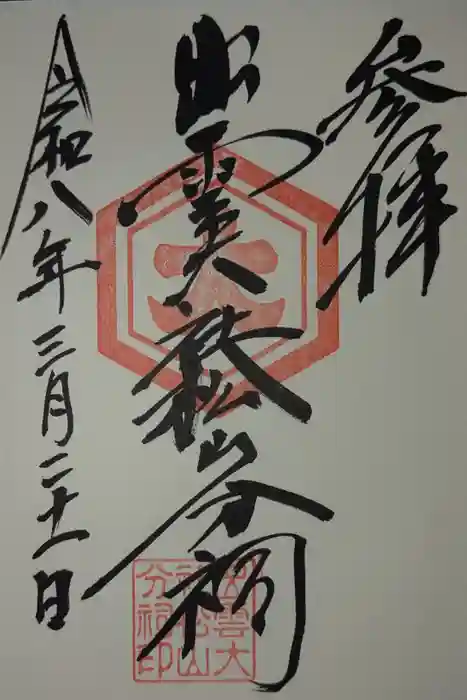 参拝
出雲大社松山分祠
令和八年三月二十一日
出雲大
社松山
分祠印